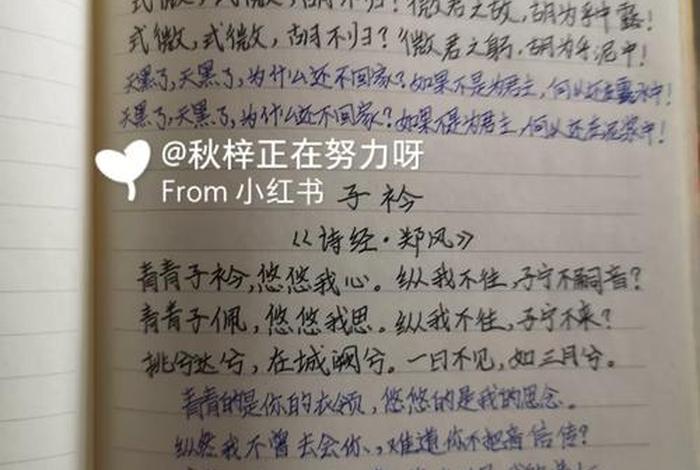 式微,式微,胡不归?微君之故,胡为乎中露!
式微,式微,胡不归?微君之躬,胡为乎泥中!
天黑了,天黑了,为什么还不回家?如果不是为君主,何以还在露水中!
天黑了,天黑了,为什么还不回家?如果不是为君主,何以还在泥浆中!
@秋梓正在努力呀
From 小红书
子衿
《诗经·郑风》
青青子衿,悠悠我心。纵我不往,子宁不嗣音?
青青子佩,悠悠我思。纵我不往,子宁不来?
挑兮达兮,在城阙兮。一日不见,如三月兮。
青青的是你的衣领,悠悠的是我的思念。
纵然我不曾去会你,难道你不把音信传?